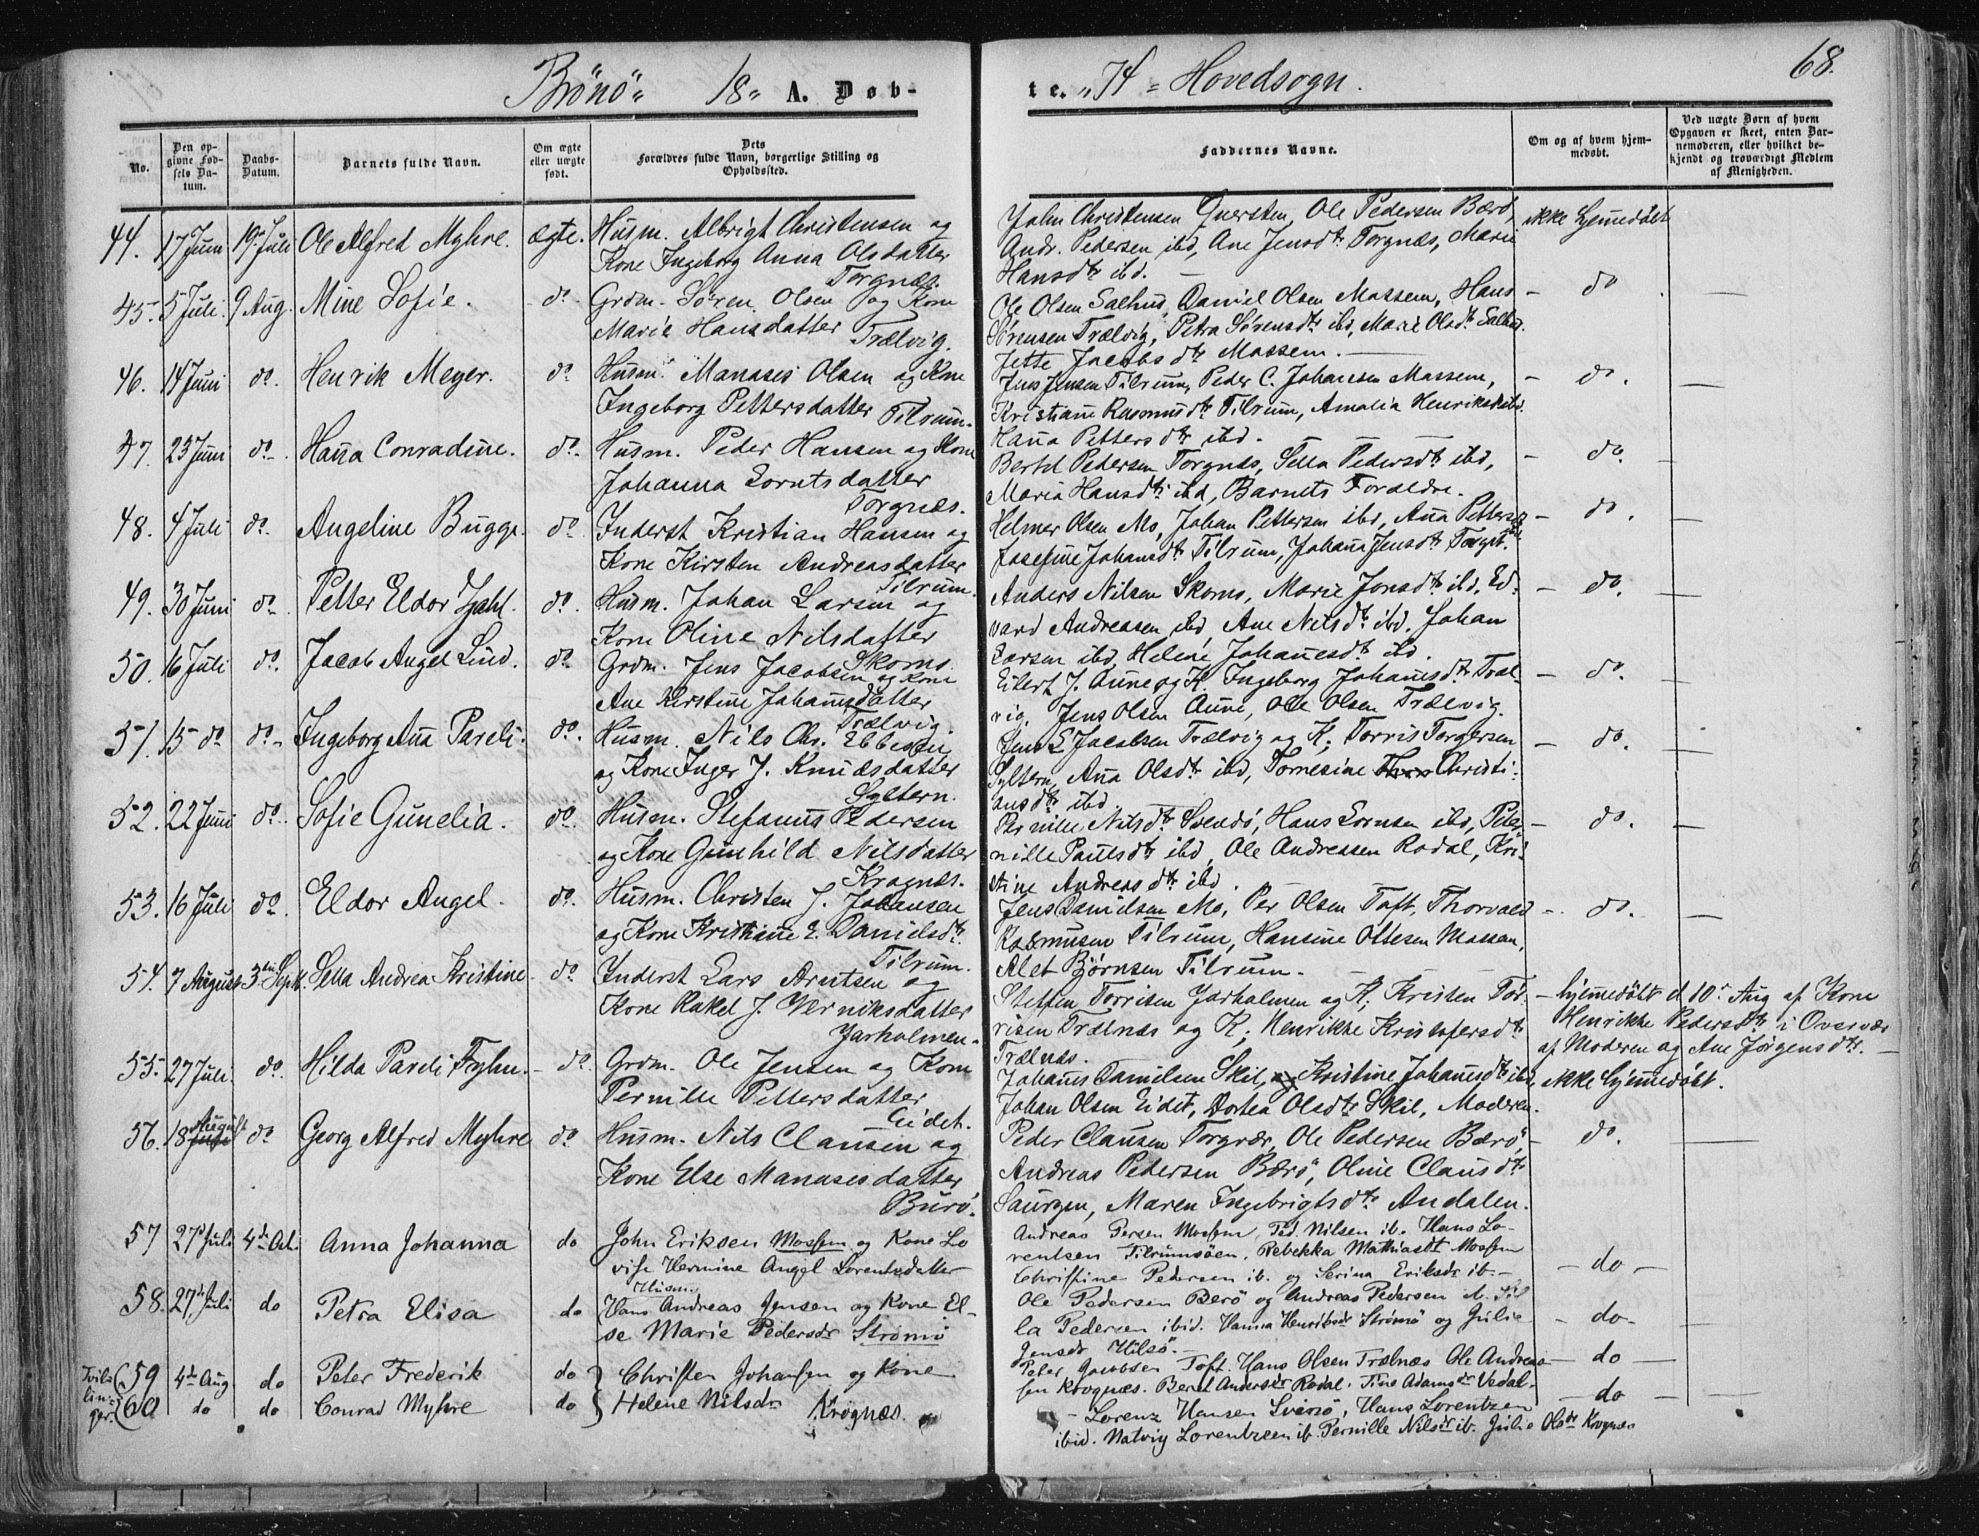 Brönö 18 A. Døb-
te. 74 Hovedsogn.
68.
No.
Den op-
givne Fød-
sels Da-
tum.
Daabs-
Datum.
Barnets fulde Navn.
Om ægte
eller uægte
født.
Dets
Forældres fulde Navn, borgerlige Stilling og
Opholdssted.
Faddernes Navne.
Om og af hvem hjem-
medøbt.
Ved uægte Børn af hvem
Opgaven er skeet, enten Bar-
nemoderen, eller hvilket be-
kjendt og troværdigt Medlem
af Menigheden.
44. 17 Juni 19 Juli Ole Alfred Myhre. ægte. Husm. Albrigt Christensen og
Kone Ingeborg Anna Olsdatter
Torgnæs.
John Christensen Ole Pedersen Bærö,
Andr. Pedersen ibd, Ane Jensdtr Torgnæs, Marie
Hansdtr ibd. —
ikke hjemmedøbt
45. 5 Juli. 9 Aug. Mine Sofie. do Grdm. Søren Olsen og Kone
Marie Hansdatter Trælvig.
Ole Olsen Salhus, Daniel Olsen Massem, Hans
Sørensen Trælvig, Petra Sørensdtr ibd, Marie Olsdtr Salhus.
Jette Jacobsdtr Massem. —
— do . —
46. 14 Juni do. Henrik Meyer. do. Husm. Manases Olsen og Kone
Ingeborg Pettersdatter Tilrum.
Jens Jensen Tilrum, Peder C. Johansen Massem,
Kristiane Rasmusdtr Tilrum, Amalia Henriksd ibd.
Hana Pettersdtr ibd.
— do. —
47. 23 Juni do. Hana Conradine. do. Husm. Peder Hansen og Kone
Johanna Lorntsdatter
Torgnæs.
Bertel Pedersen Torgnæs, Sella Pedersdtr ibd,
Maria Hansdtr ibd, Barnets Forældre.
— do. —
48. 4 Juli do. Angeline Bugge. do. Inderst Kristian Hansen og
Kone Kirsten Andreasdatter
Tilrum.
Helmer Olsen Mo, Johan Pettersen ibd, Ana Pettersdtr
Josefine Johansdtr Tilrum, Johana Jensdtr
— do. —
49. 30 Juni do. Petter Eldor Zahl. do. Husm. Johan Larsen og
Kone Oline Nilsdatter
Skomo.
Anders Nilsen Skomo, Marie Jonsdtr ibd, Ed-
vard Andreasen ibd, Ane Nilsdtr ibd, Johan
Larsen ibd, Helene Johanesdtr ibd.
— do. —
50. 16 Juli do. Jacob Angel Lind. do. Grdm. Jens Jacobsen og Kone
Ane Kirstine Johanesdatter
Trælvig.
Eilert J. Aune og K. Ingeborg Johanesdtr Træl-
vig, Jens Olsen Aune, Ole Olsen Trælvig.
— do. —
51. 15 do do. Ingeborg Ana Pareli. do. Husm. Nils Chr. Ebbesen
og Kone Inger J. Knudsdatter
Syltern.
Jens L Jacobsen Trælvig og K; Torris Torgersen
Syltern, Ana Olsdtr ibd, Tomesine Christi-
ansdtr ibd.
— do. —
52. 22 Juni do. Sofie Gunelia. do. Husm. Stefanus Pedersen
og Kone Gunhild Nilsdatter
Krognæs.
Pernille Nilsdtr Svendö, Hans Lornsen ibd, Peter-
nille Paulsdtr ibd, Ole Andreasen Rodal, Kri-
stine Andreasdtr ibd.
— do. —
53. 16 Juli do. Eldor Angel. do. Husm. Christen J. Johansen
og Kone Kristiane E. Danielsdtr.
Tilrum.
Jens Danielsen Mo, Per Olsen Toft, Thorvald
Rasmusen Tilrum, Hansine Ottesen Massem,
Alet Bjørnsen Tilrum. —
— do. —
54. 7 August 3die Sept. Sella Andrea Kristine do. Inderst Lars Arntsen og
Kone Rakel J. Verniksdatter
Jarholmen.
Steffen Torrisen Jarholmen og K; Kristen Tor-
risen Trælnæs og K; Henrikke Kristofersdtr
Trælnæs.
— hjemmedøbt d 10 Aug af Kone
Henrikke Pedersdtr i Oversæ
af Moderen og Ane Jørgensdtr. —
55. 27 Juli. do. Hilda Pareli Fyhn. do. Grdm. Ole Jensen og Kone
Pernille Pettersdatter
Eidet.
Johanes Danielsen Skil, og Kristine Johanesdtr ibd,
Johan Olsen Eidet, Dortea Olsdtr Skil, Moderen.
ikke hjemmedøbt.
56. 18 August do Georg Alfred Myhre do. Husm. Nils Clausen og
Kone Else Manasesdatter
Burö.
Peder Clausen Torgvær, Ole Pedersen Bærö,
Andreas Pedersen Bærö, Oline Clausdtr
Saurgen, Maren Ingebrigtsdtr Andalen.
— do. —
57 27 Juli 4de Oct. Anna Johanna do John Eriksen Mossem og Kone Lo
vise Hermine Angel Lorentzdatter
Andreas Persen Mossem, Ped. Nilsen ib. Hans Lo-
rentsen Tilrumsöen, Rebekka Mathiasdt Mossem
Christine Pedersen ib. og Serina Eriksdr ib. —
— do —
58. 27 Juli do Petra Elisa do Husm
Hans Andreas Jensen og Kone El-
se Marie Pedersdr Strömö
Ole Pedersen Berö og Andreas Pedersen ib. Sil
la Pedersen ibid. Hanna Henriksdr Strömö og Julie
Jensdr Hilsö.
— do —
Tvil-
lin-
ger. 59 4de Aug do Peter Frederik do Christen Johansen og Kone
60 do do Conrad Myhre do Helene Nilsdr Krognæs.
Peter Jacobsen Toft. Hans Olsen Trælnæs Ole Andreas-
sen Krognæs. Beret Andersdr Rodal. Tine Adamsdr Vedal.
— do —
— Lorenz Hansen Svensö, Hans Lorentzen
ibid. Natvig Lorentzen ib. Pernille Nilsdr ib. Julie Olsdr Krognæs
— do —